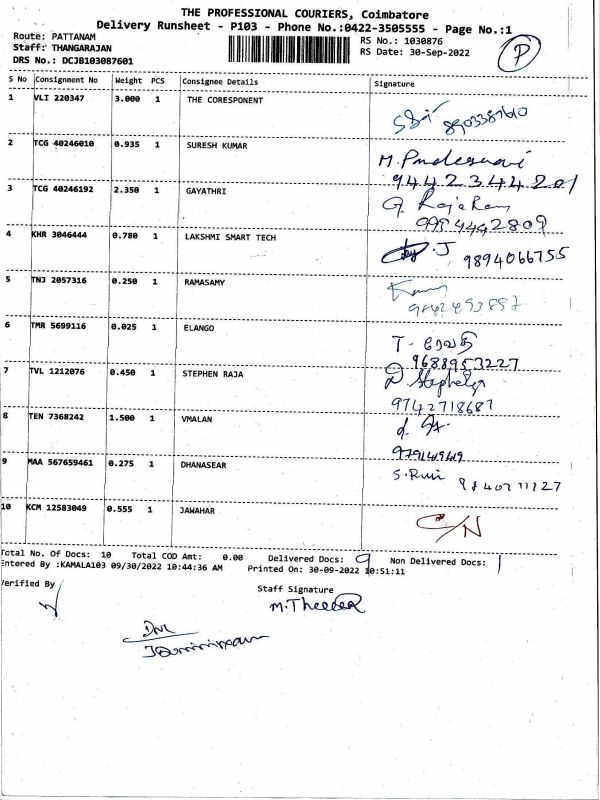 THE PROFESSIONAL COURIERS, Coimbatore
Delivery Runsheet - P103 - Phone No.:0422-3505555 - Page No.:1
Route: PATTANAM
Staff: THANGARAJAN
DRS No.: DCJB103087601
RS No.: 1030876
RS Date: 30-Sep-2022
P
S No Consignment No Weight PCS Consignee Details Signature
1 VLI 220347 3.000 1 THE CORESPONENT
2 TCG 40246010 0.935 1 SURESH KUMAR
M.
9442344201
3 TCG 40246192 2.350 1 GAYATHRI
G. Rajaram
9994442809
4 KHR 3046444 0.780 1 LAKSHMI SMART TECH
J 9894066755
5 TNJ 2057316 0.250 1 RAMASAMY
6 TMR 5699116 0.025 1 ELANGO
T- ரேவதி
9688953227
7 TVL 1212076 0.450 1 STEPHEN RAJA
9742718687
8 TEN 7368242 1.500 1 VMALAN
9 MAA 567659461 0.275 1 DHANASEAR
10 KCM 12583049 0.555 1 JAWAHAR
C/N
Total No. Of Docs: 10 Total COD Amt: 0.00 Delivered Docs: 9 Non Delivered Docs: 1
Entered By :KAMALA103 09/30/2022 10:44:36 AM Printed On: 30-09-2022 10:51:11
Verified By
Staff Signature